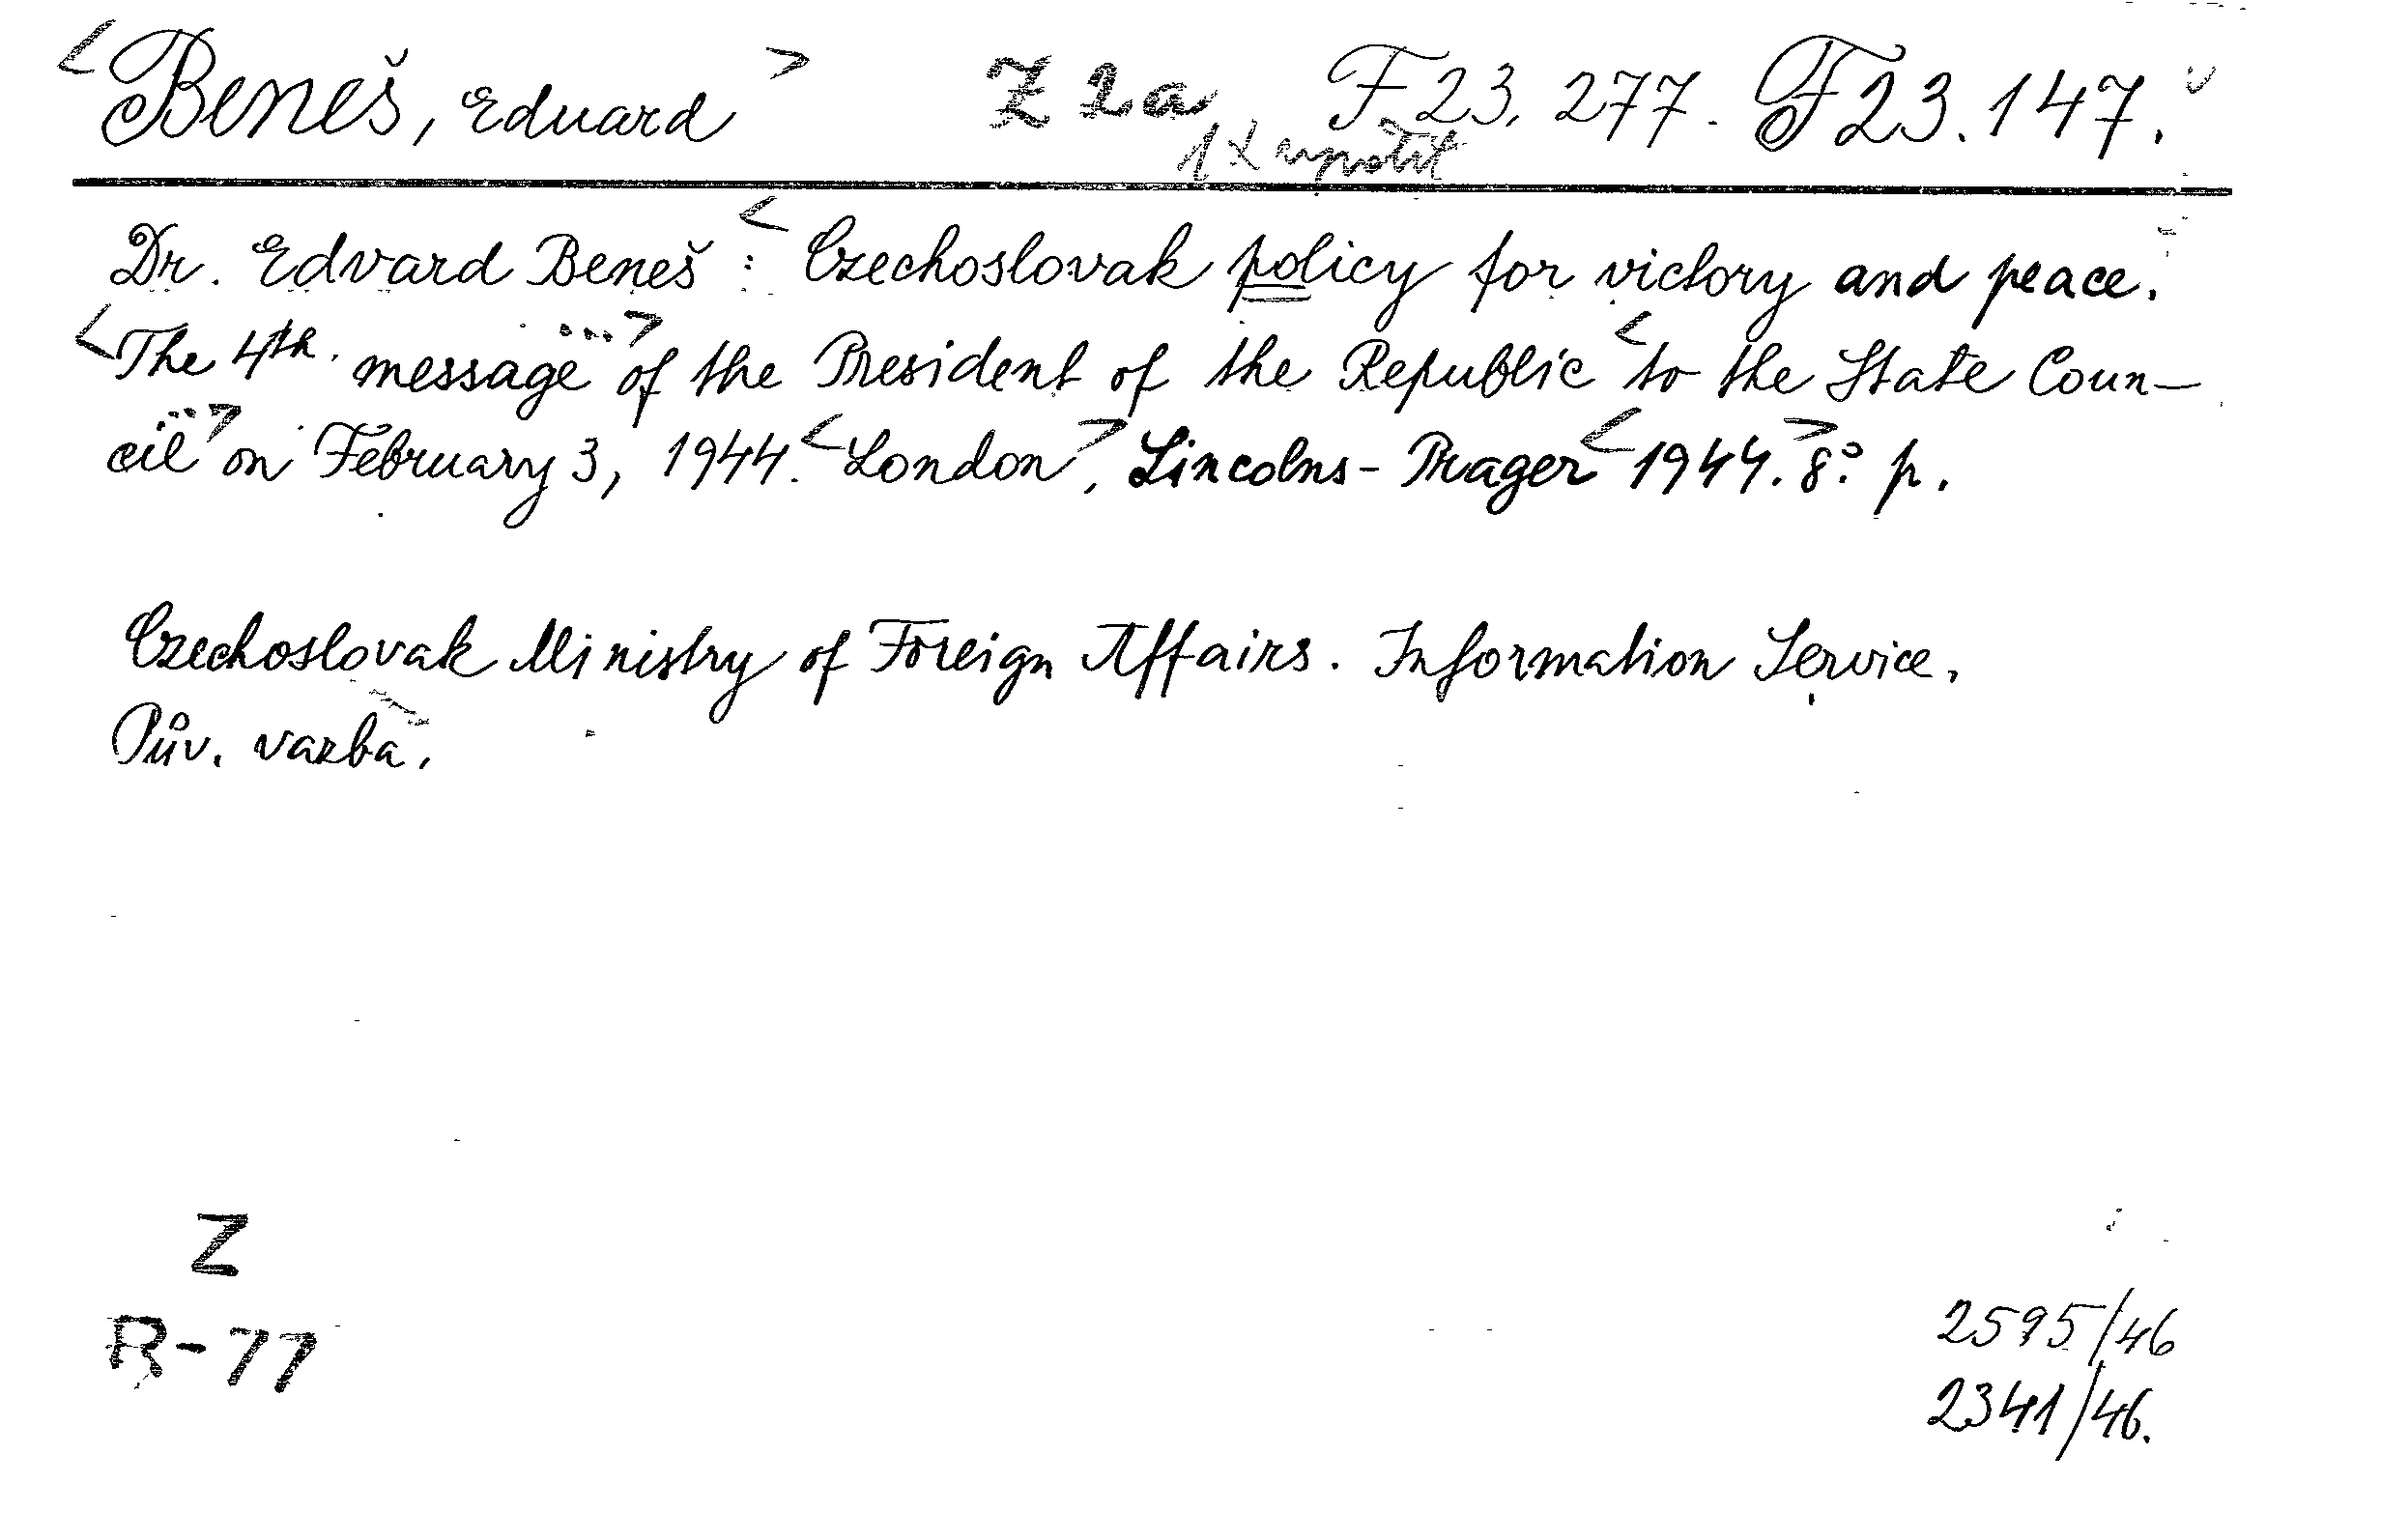 <Beneš, Eduard> Z 2a F 23, 277. F 23.147.
1x
Dr. Edvard Beneš: <Czechoslovak policy for victory and peace.
<The 4th. message ...> of the President of the Republic <to the State Coun-
cil ...> on February 3, 1944. <London>, Lincolns-Prager <1944.> 8° p.
Czechoslovak Ministry of Foreign Affairs. Information Service.
Pův. vazba.
Z
R-77
2595/46
2341/46.